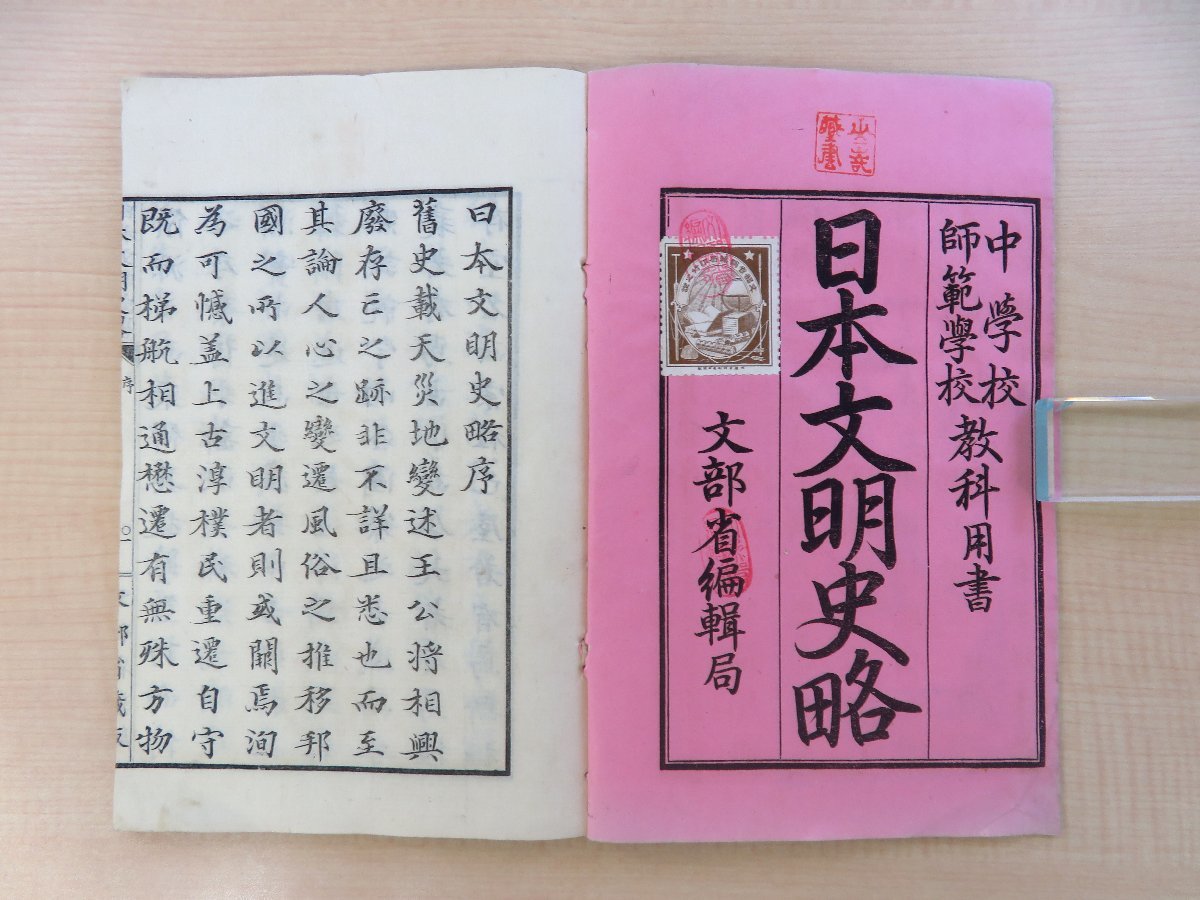 中學校
師範學校
教科用書
日本文明史略
文部省編輯局
日本文明史略序
舊史載天災地變述王公將相興
廢存亡之跡非不詳且悉也而至
其論人心之變遷風俗之推移邦
國之所以進文明者則或闕焉洵
為可憾蓋上古淳樸民重遷自守
既而梯航相通懋遷有無殊方物
序